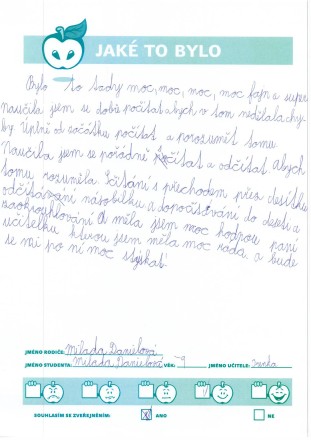 JAKÉ TO BYLO
Bylo to tady moc, moc, moc, moc fajn a super
naučila jsem se dobře počítat abych v tom nedělala chy-
by. Úplně od začátku počítat a porozumět tomu
Naučila jsem se pořádně počítat a odčítat Abych
tomu rozuměla Sčítání s přechodem přes desítku
odčítání násobilku a dopočítávání do deseti a
zaokrouhlování A měla jsem moc hodnou paní
učitelku kterou jsem měla moc ráda a bude
se mi po ní moc stýskat
JMÉNO RODIČE: Milada Danielová
JMÉNO STUDENTA: Milada Danielová VĚK: 9 JMÉNO UČITELE:
SOUHLASÍM SE ZVEŘEJNĚNÍM: ANO NE